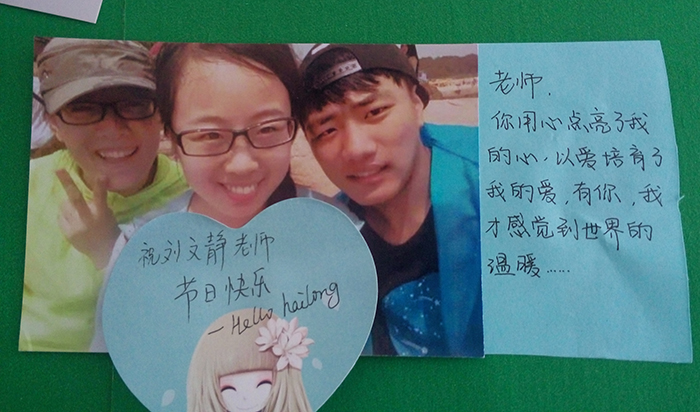 祝刘文静老师
节日快乐
—Hello hailong
老师，
你用心点亮了我
的心，以爱培育了
我的爱，有你，我
才感觉到世界的
温暖……